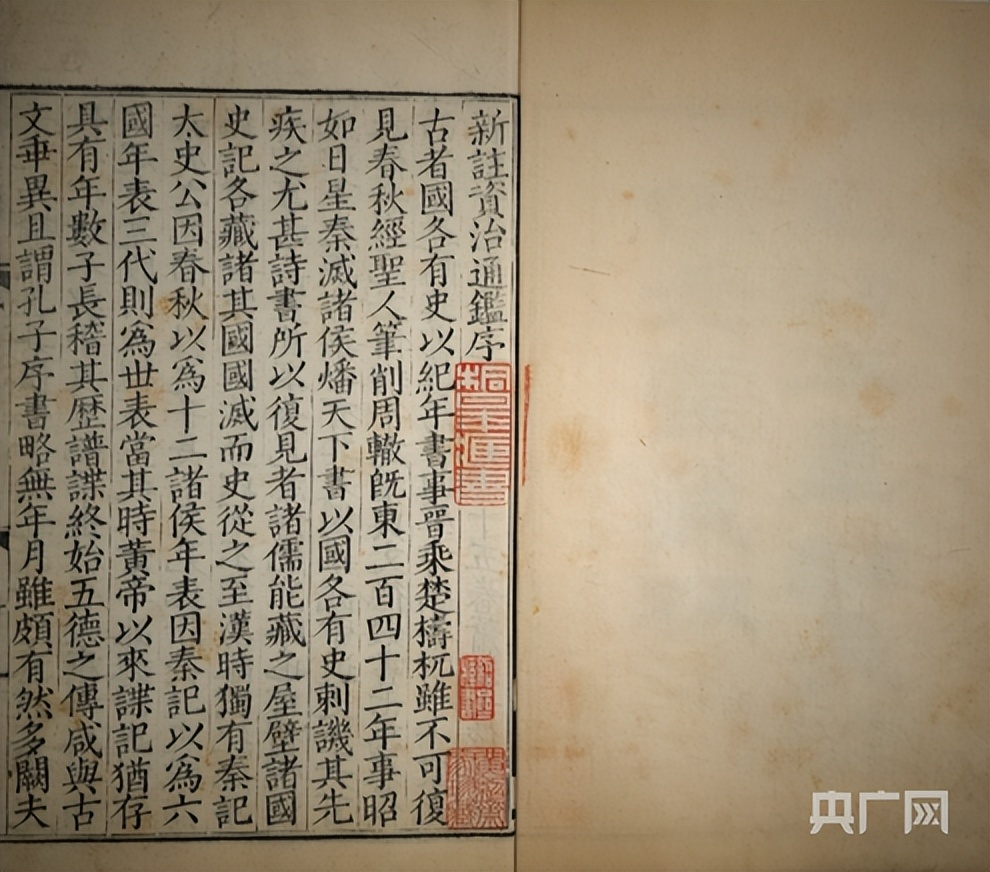 新註資治通鑑序
古者國各有史以紀年書事晉乘楚檮杌雖不可復
見春秋經聖人筆削周轍旣東二百四十二年事昭
如日星秦滅諸侯燔天下書以國各有史刺譏其先
疾之尤甚詩書所以復見者諸儒能藏之屋壁諸國
史記各藏諸其國國滅而史從之至漢時獨有秦記
太史公因春秋以爲十二諸侯年表因秦記以爲六
國年表三代則爲世表當其時黃帝以來諜記猶存
具有年數子長稽其歷譜諜終始五德之傳咸與古
文乖異且謂孔子序書略無年月雖頗有然多闕夫
央广网